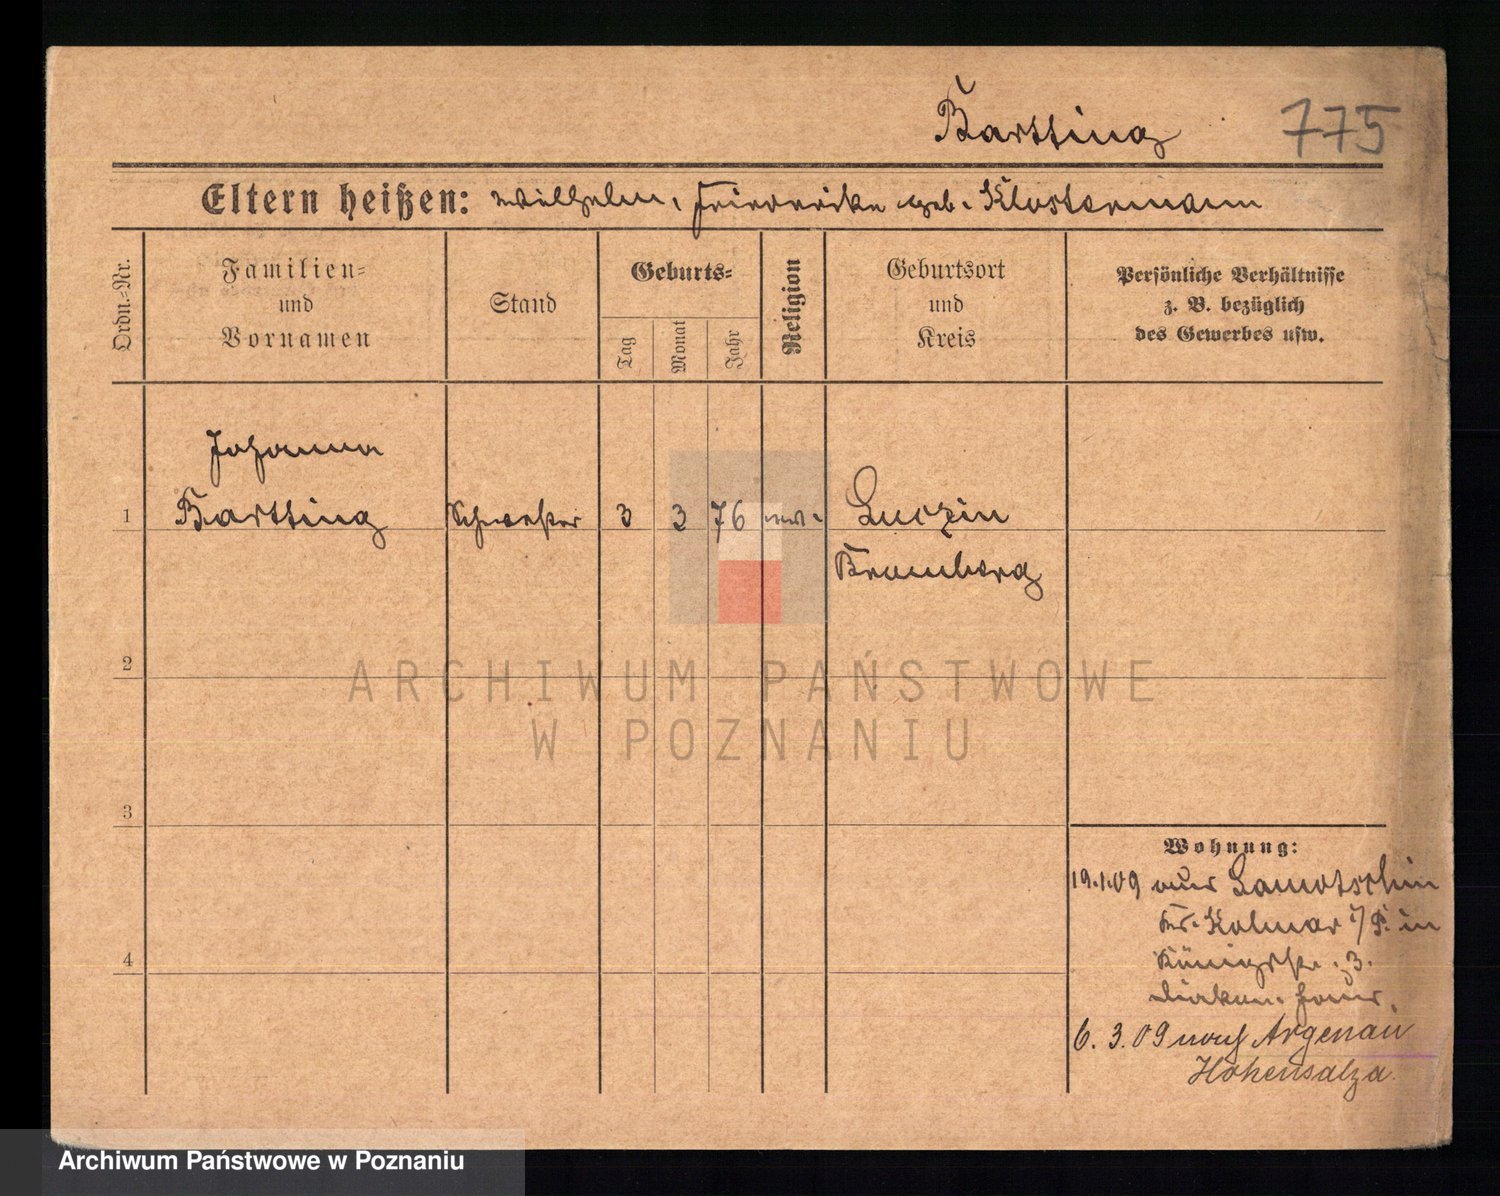 Bartting
775
Eltern heißen: Wilhelm, Friederike geb. Klostermann
Ordn.-Nr.
Familien-
und
Vornamen
Stand
Geburts-
Tag
Monat
Jahr
Religion
Geburtsort
und
Kreis
Persönliche Verhältnisse
z. B. bezüglich
des Gewerbes usw.
Johanna
1 Bartting Schwester 3 3 76 ev. Luczin
Bromberg
2
ARCHIWUM PAŃSTWOWE
W POZNANIU
3
Wohnung:
19.1.09 aus Samotschin
Kr. Kolmar i/P. in
4 Königstr. 3.
Diakon. Haus.
6. 3. 09 nach Argenau
Hohensalza.
Archiwum Państwowe w Poznaniu